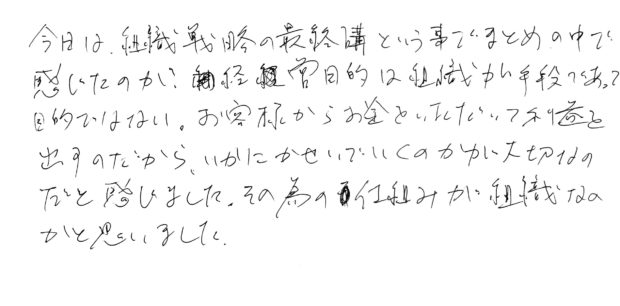 今日は、組織戦略の最終講という事でまとめの中で
感じたのが、経営目的は組織が手段であって
目的ではない。お客様からお金をいただいて利益を
出すのだから、いかにかせいでいくのかが大切なの
だと感じました。その為の仕組みが組織なの
かと思いました。